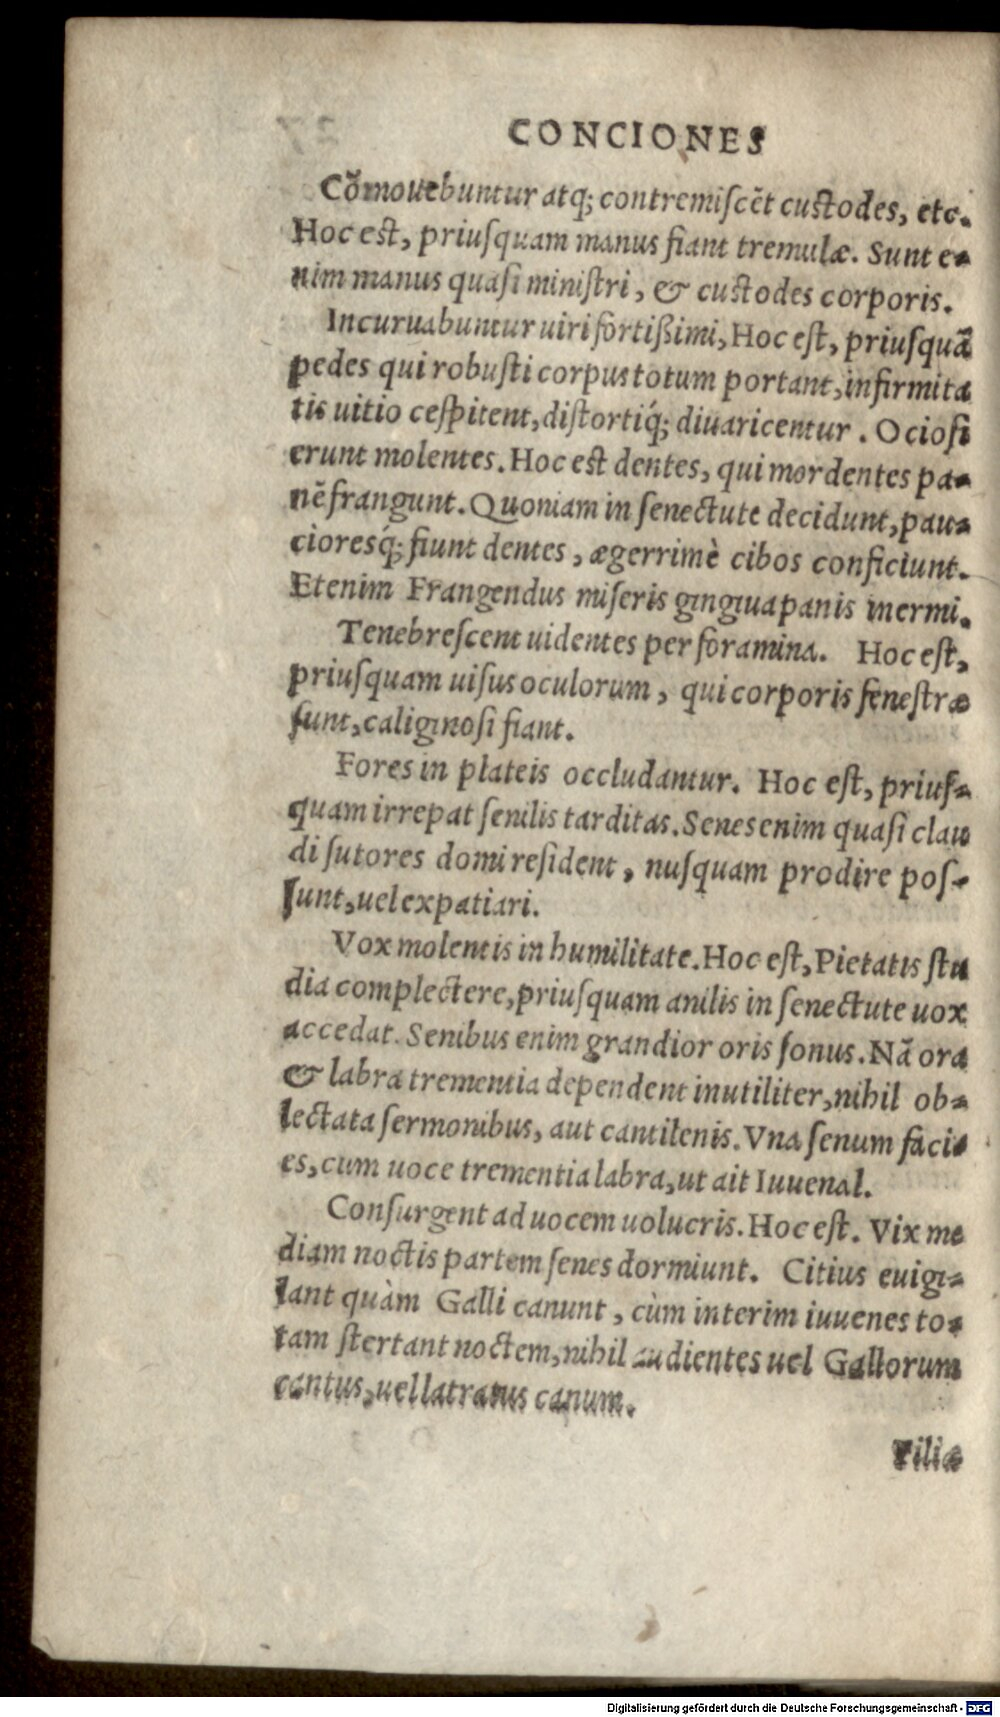 CONCIONES
Cõmouebuntur atq; contremiscẽt custodes, etc.
Hoc est, priusquam manus fiant tremulæ. Sunt e-
nim manus quasi ministri, & custodes corporis.
Incuruabuntur uiri fortißimi, Hoc est, priusquã
pedes qui robusti corpus totum portant, infirmita
tis uitio cespitent, distortiq́; diuaricentur. Ociosi
erunt molentes. Hoc est dentes, qui mordentes pa-
nẽ frangunt. Quoniam in senectute decidunt, pau-
cioresq́; fiunt dentes, ægerrimè cibos conficiunt.
Etenim Frangendus miseris gingiua panis inermi.
Tenebrescent uidentes per foramina. Hoc est,
priusquam uisus oculorum, qui corporis fenestræ
sunt, caliginosi fiant.
Fores in plateis occludantur. Hoc est, prius-
quam irrepat senilis tarditas. Senes enim quasi clau
di sutores domi resident, nusquam prodire pos-
sunt, uel expatiari.
Vox molentis in humilitate. Hoc est, Pietatis stu
dia complectere, priusquam anilis in senectute uox
accedat. Senibus enim grandior oris sonus. Nã ora
& labra trementia dependent inutiliter, nihil ob-
lectata sermonibus, aut cantilenis. Vna senum faci-
es, cum uoce trementia labra, ut ait Iuuenal.
Consurgent ad uocem uolucris. Hoc est. Vix me
diam noctis partem senes dormiunt. Citius euigi-
lant quàm Galli canunt, cùm interim iuuenes to-
tam stertant noctem, nihil audientes uel Gallorum
cantus, uel latratus canum.
Filiæ
Digitalisierung gefördert durch die Deutsche Forschungsgemeinschaft - DFG